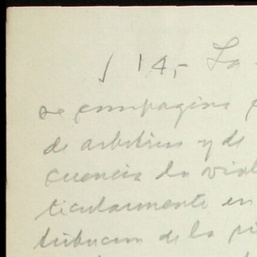 14,- La
se compagina
de arbitrios y de
cuencia la viol
ticularmente en
tribucion de la pi